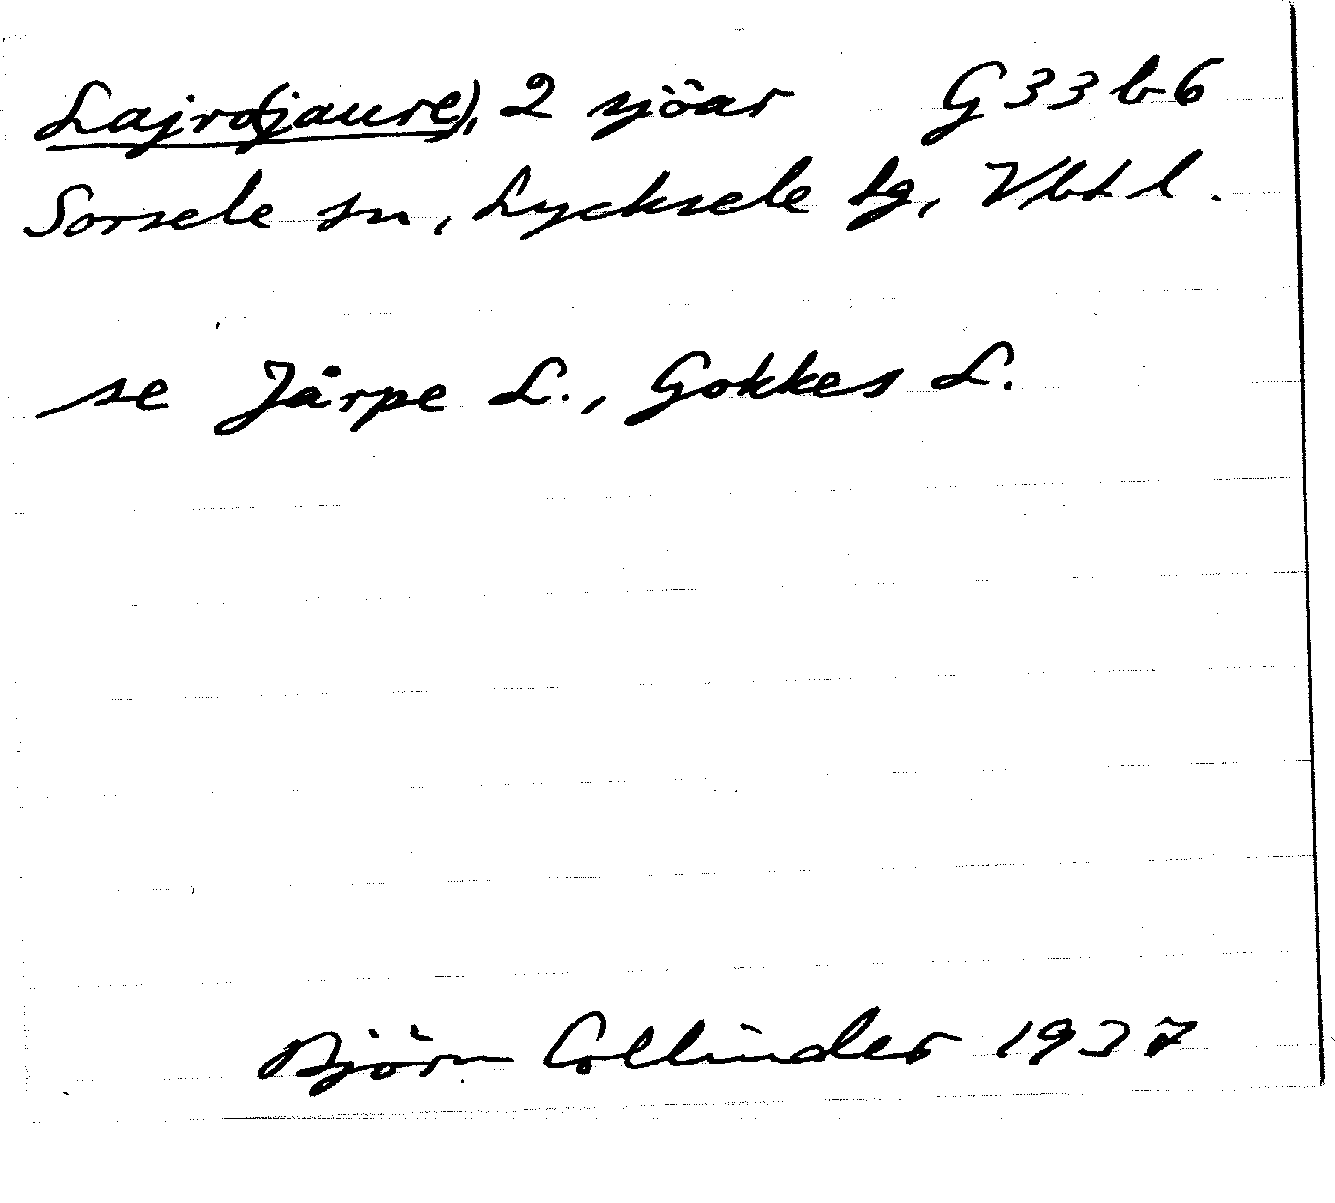 Lajro(jaure), 2 sjöar G 33 b 6
Sorsele sn, Lycksele tg, Vbt l.
se Järpe L., Gokkes L.
Björn Collinder 1937